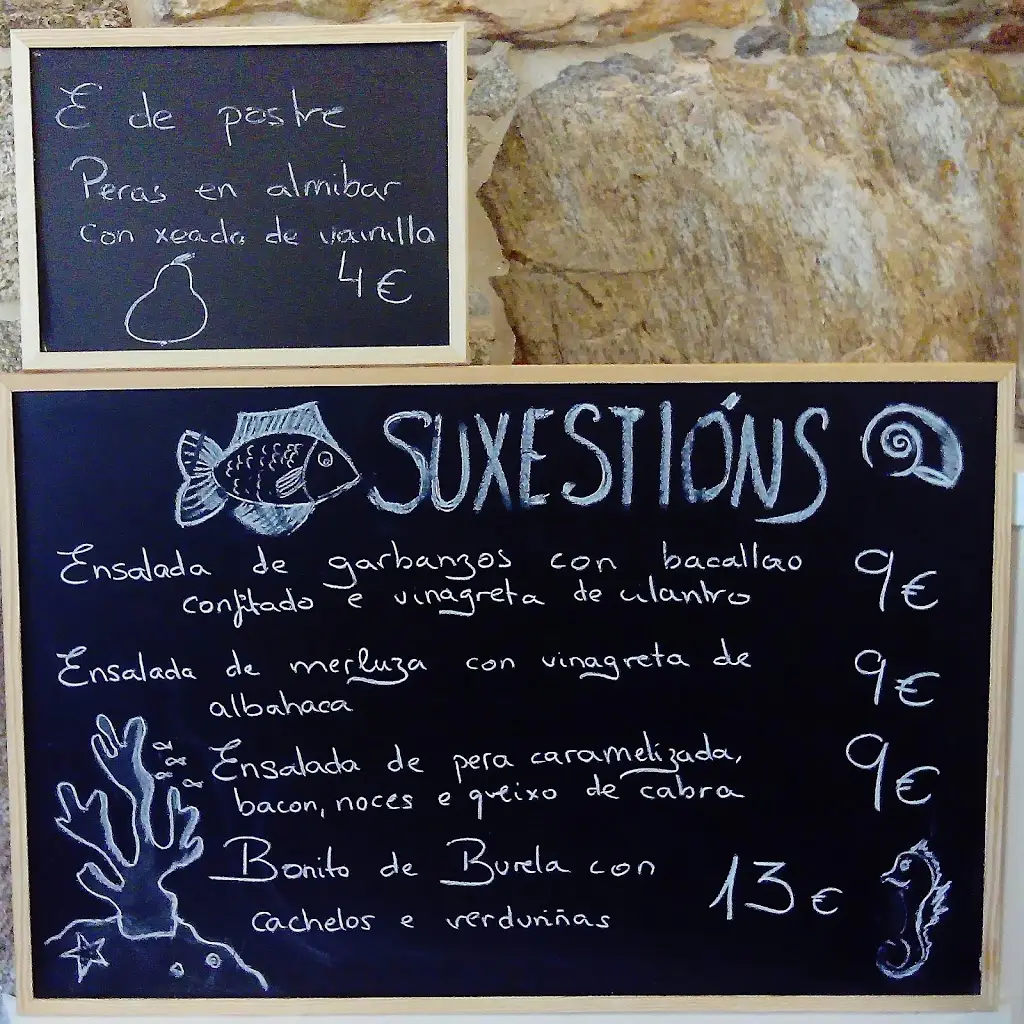 E de postre
Peras en almibar
con xeada de vainilla
4€
SUXESTIÓNS
Ensalada de garbanzos con bacallao 9€
confitado e vinagreta de cilantro
Ensalada de merluza con vinagreta de 9€
albahaca
Ensalada de pera caramelizada, 9€
bacon, noces e queixo de cabra
Bonito de Burela con 13€
cachelos e verduriñas